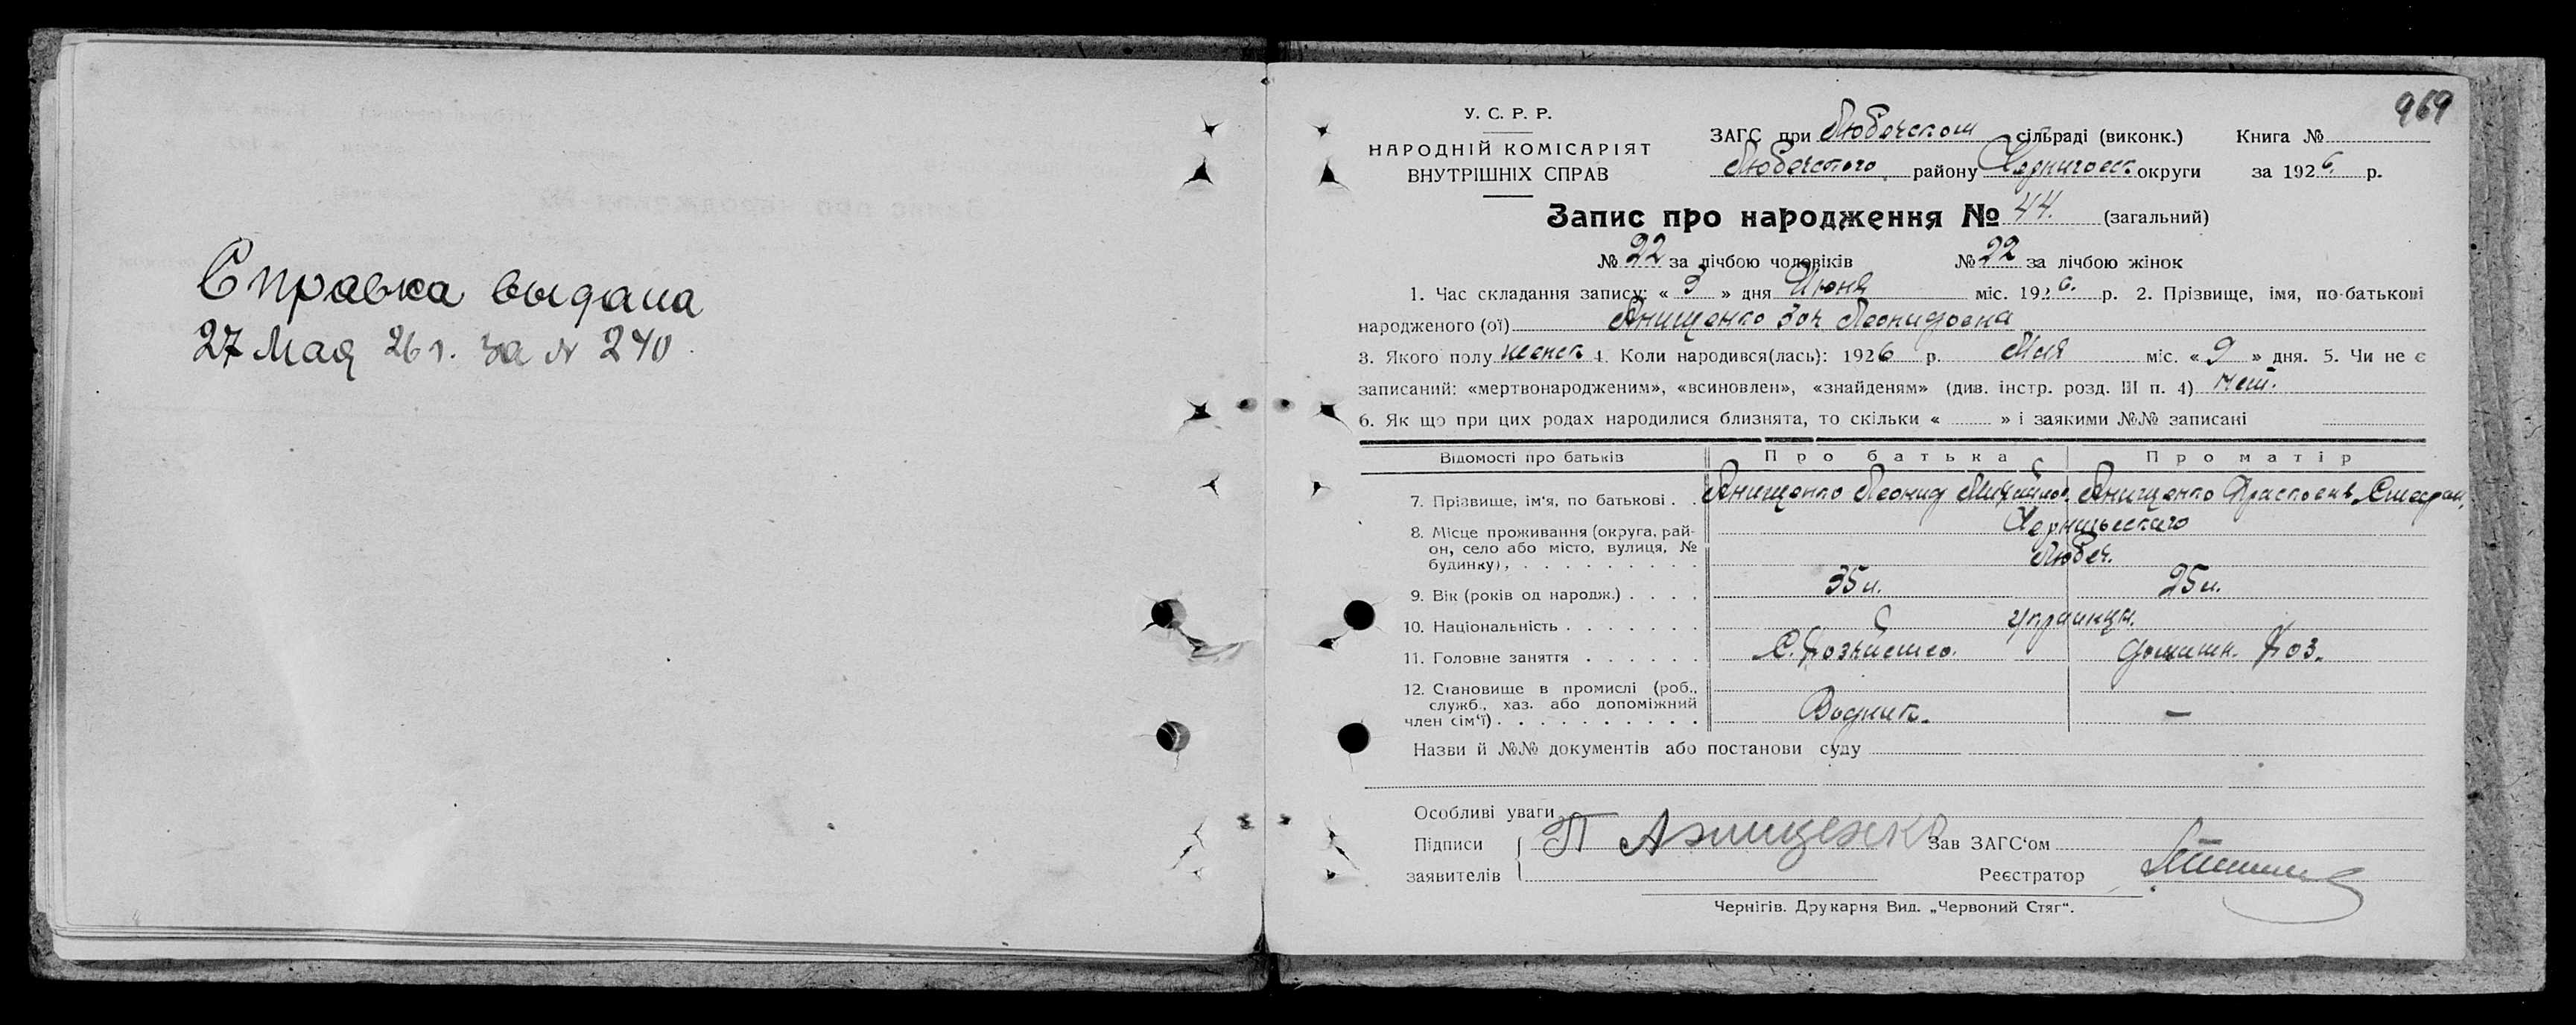 Справка выдана
27 Мая 26 г. за № 240
969
У. С. Р. Р.
НАРОДНІЙ КОМІСАРІЯТ
ВНУТРІШНІХ СПРАВ
ЗАГС при Любечском сільраді (виконк.) Книга №
Любечского району округи за 1926. р.
Запис про народження № 44. (загальний)
№ 22 за лічбою чоловіків № 22 за лічбою жінок
1. Час складання запису: « » дня Июня міс. 1926. р. 2. Прізвище, імя, по-батькові
народженого (ої) Анищенко Зоя Леонидовна
3. Якого полу женск 4. Коли народився(лась): 1926 р. Мая міс. « 9 » дня. 5. Чи не є
записаний: «мертвонародженим», «всиновлен», «знайденям» (див. інстр. розд. III п. 4) нет.
6. Як що при цих родах народилися близнята, то скільки « » і заякими №№ записані
Відомості про батьків Про батька Про матір
7. Прізвище, ім'я, по батькові . . Анищенко Леонид Анищенко Степан.
8. Місце проживання (округа, рай-
он, село або місто, вулиця, №
будинку), . . . . . . . . . Любеч.
9. Вік (років од народж.) . . . . 35 л. 25 л.
10. Національність . . . . . . . украинцы.
11. Головне заняття . . . . . . домашн. хоз.
12. Становище в промислі (роб.,
служб., хаз. або допоміжний
член сім'ї) . . . . . . . . . . —
Назви й №№ документів або постанови суду
Особливі уваги
Підписи П Анищенко Зав ЗАГС'ом
заявителів Реєстратор
Чернігів. Друкарня Вид. „Червоний Стяг“.